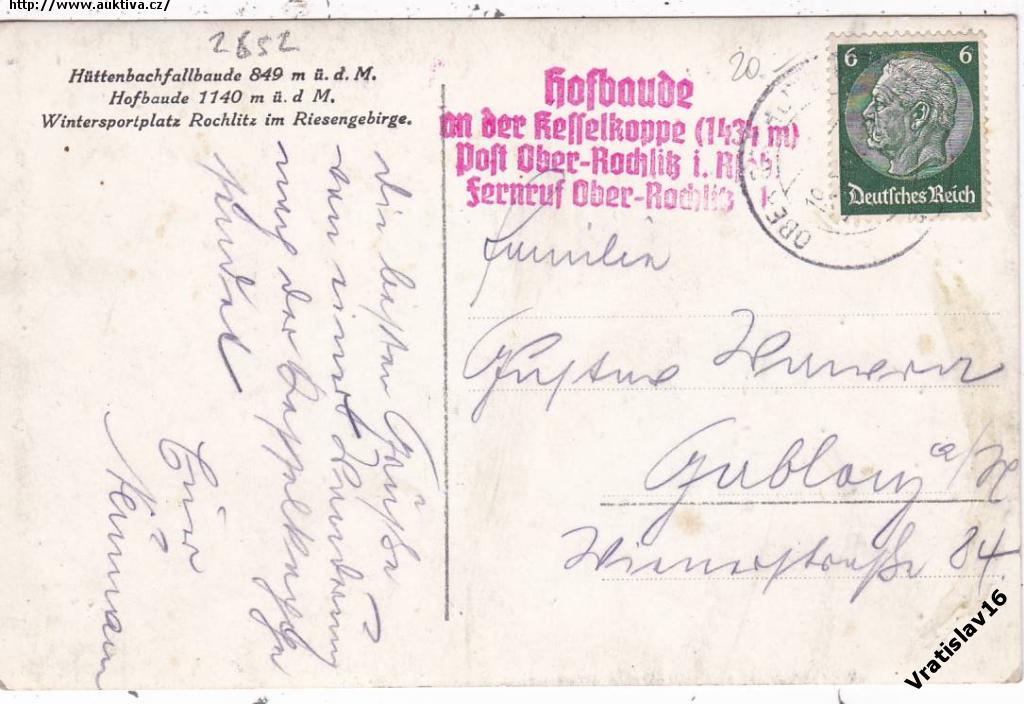 http://www.auktiva.cz/
2652
Hüttenbachfallbaude 849 m ü. d. M.
Hofbaude 1140 m ü. d M.
Wintersportplatz Rochlitz im Riesengebirge.
Hofbaude
an der Kesselkoppe (1434 m)
Post Ober-Rochlitz i. R
Fernruf Ober-Rochlitz 1
20.-
OBE
6 6
Deutsches Reich
Die besten Grüße
von einer Wanderung
der Kesselkoppe
sendet
Euer
Familie
Gustav
Gablonz a/N
Wienerstraße 84.
Vratislav16